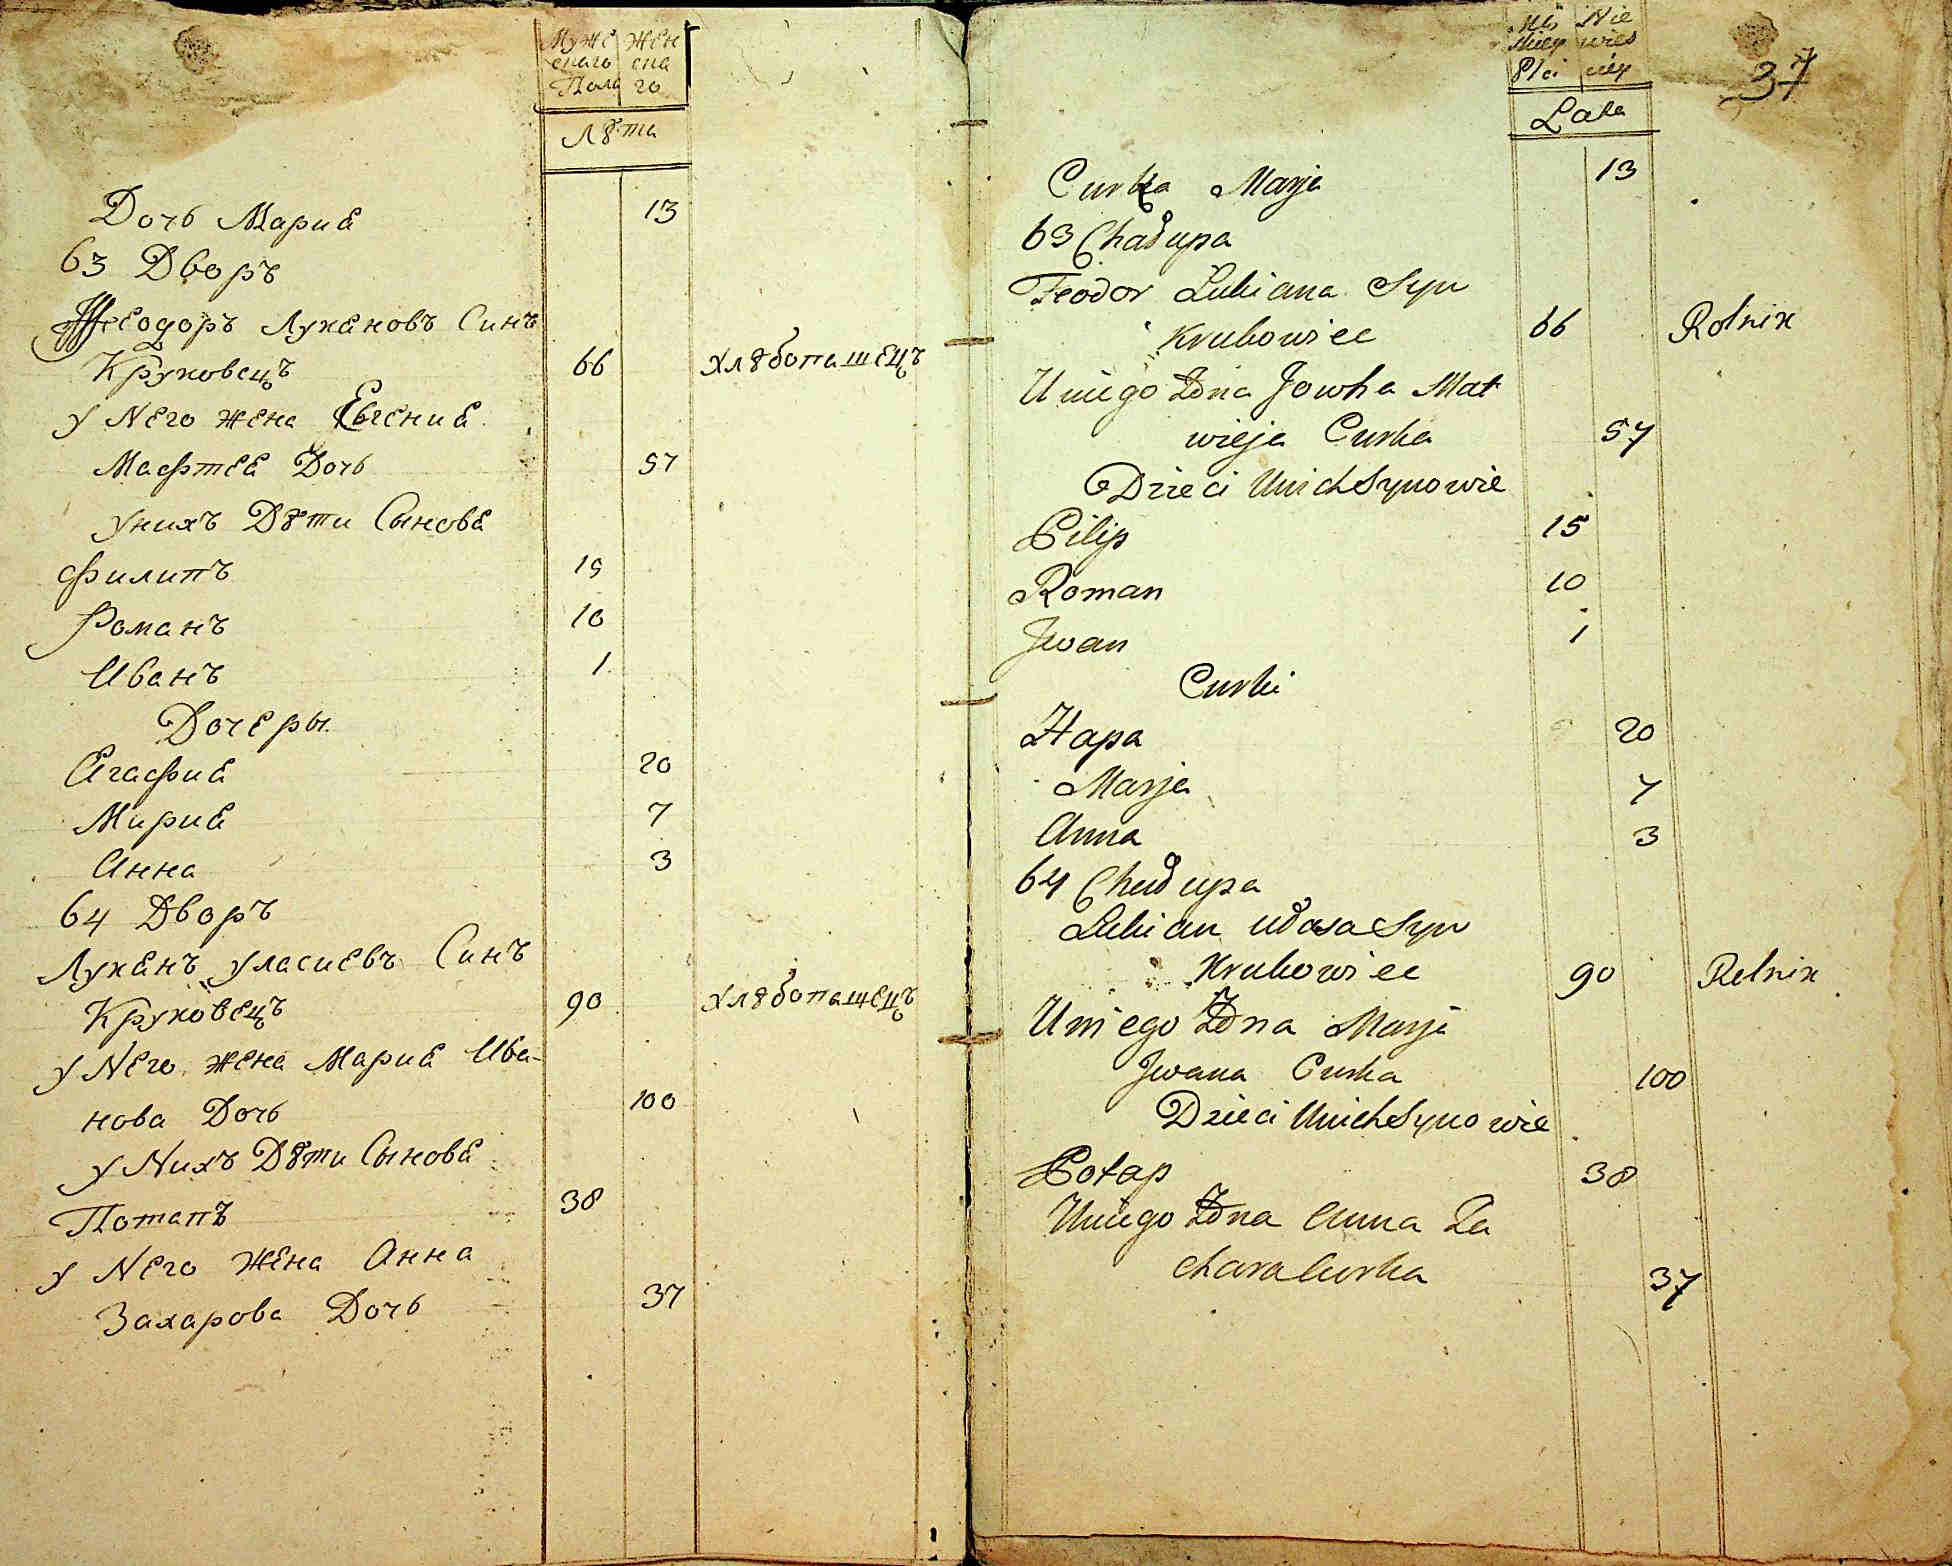 Муже Жен
скаго ска
Пола го
Лѣта
Дочь Мариа 13
63 Дворъ
Феодоръ Лукановъ Синъ
Круковецъ 66 хлѣбопашецъ
у Него жена Евгениа
Мафтеа Дочь 57
унихъ Дѣти Сынова
Филипъ 15
Романъ 10
Иванъ 1
Дочеры
Агафиа 20
Мариа 7
Анна 3
64 Дворъ
Луканъ Уласиевъ Синъ
Круковецъ 90 хлѣбопашецъ
у Него жена Мариа Ива-
нова Дочь 100
у Нихъ Дѣти Сынова
Потапъ 38
у Него Жена Анна
Захарова Дочь 37
37
Męs Nie
skiey wies
Płci ciey
Lata
Curka Marja 13
63 Chałupa
Feodor Lukiana Syn
Krukowiec 66 Rolnik
Uniego Żona Jowha Mat
wieja Curka 57
Dzieci Unich Synowie
Pilip 15
Roman 10
Jwan 1
Curki
Hapa 20
Marja 7
Anna 3
64 Chałupa
Lukian Ułasa Syn
Krukowiec 90 Rolnik
Uniego Żona Marja
Jwana Curka 100
Dzieci Unich Synowie
Potap 38
Uniego Żona Anna Za
chara Curka 37